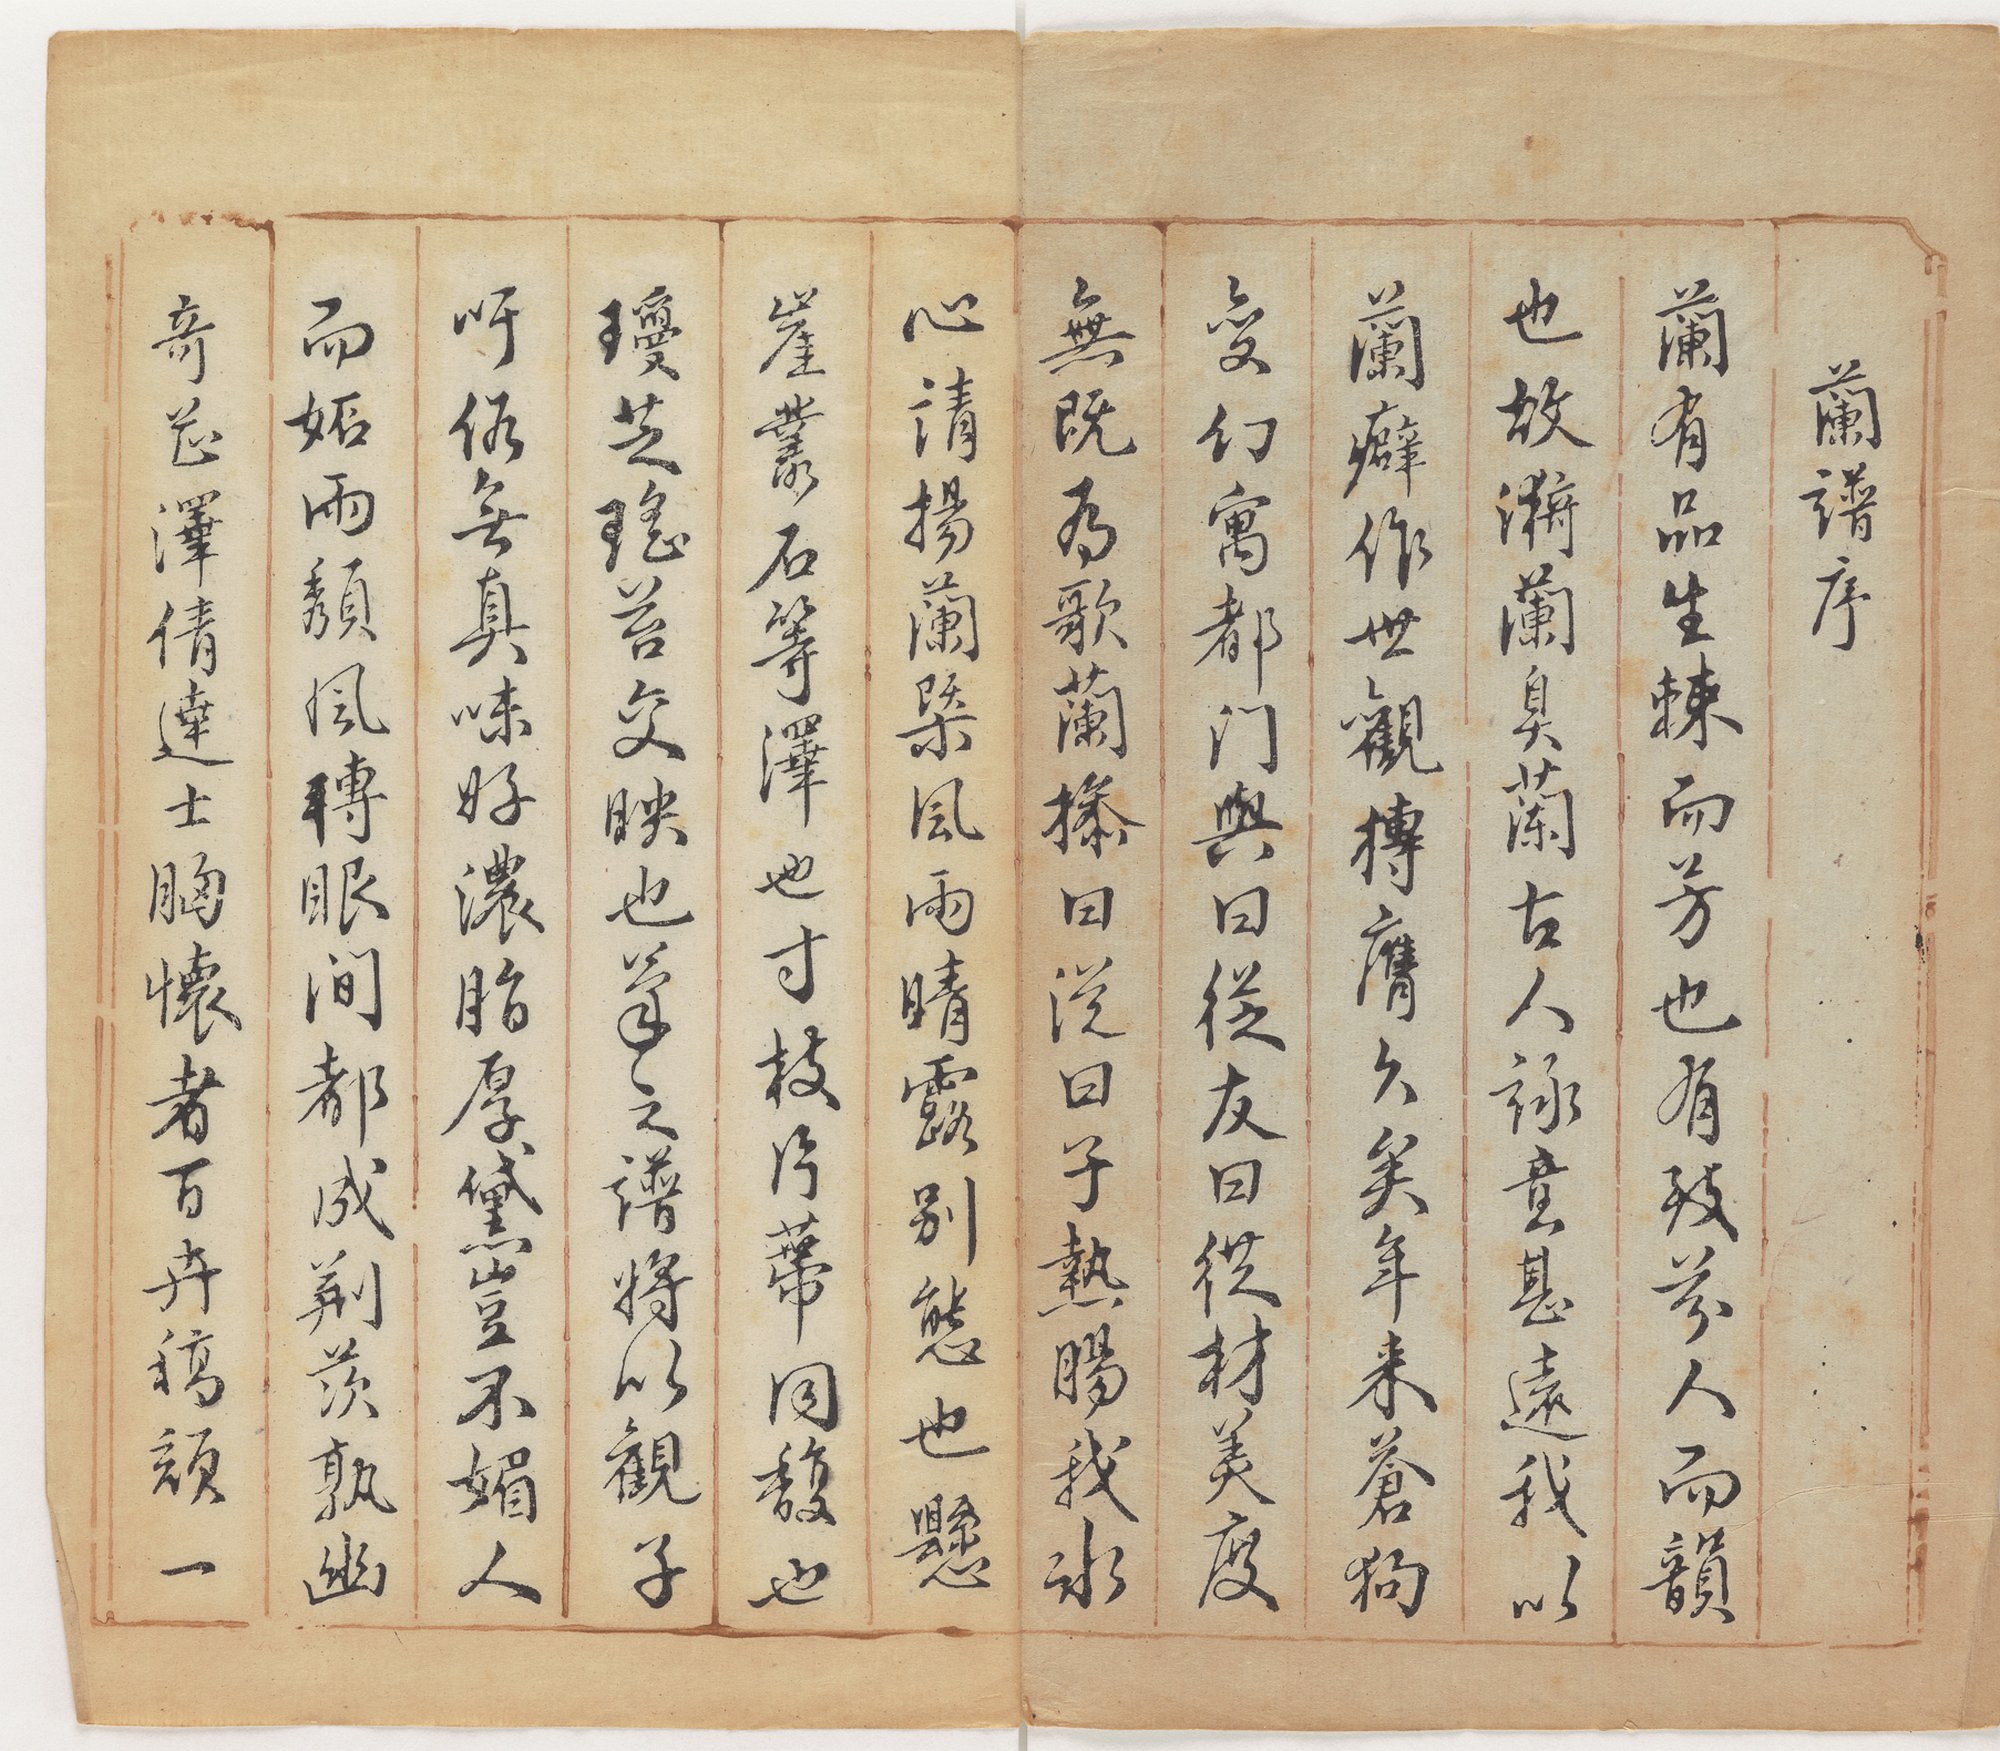 蘭譜序
蘭有品生棘而芳也有致芬人而韻
也故漪蘭臭蘭古人詠意甚遠我以
蘭癖作世觀摶膺久矣年来蒼狗
變幻寓都门與曰從友曰從材美度
無既為歌蘭操曰渓曰子熱腸我冰
心請揚蘭槩風雨晴露別態也懸
崖叢石等澤也寸枝片蒂同馥也
瓊芝瑤苔交映也羊之譜將以觀子
吁俗無真味好濃脂厚黛豈不媚人
而妬雨頽風轉眼间都成荆茨孰幽
奇芯澤倩達士胸懷者百卉稿頳一